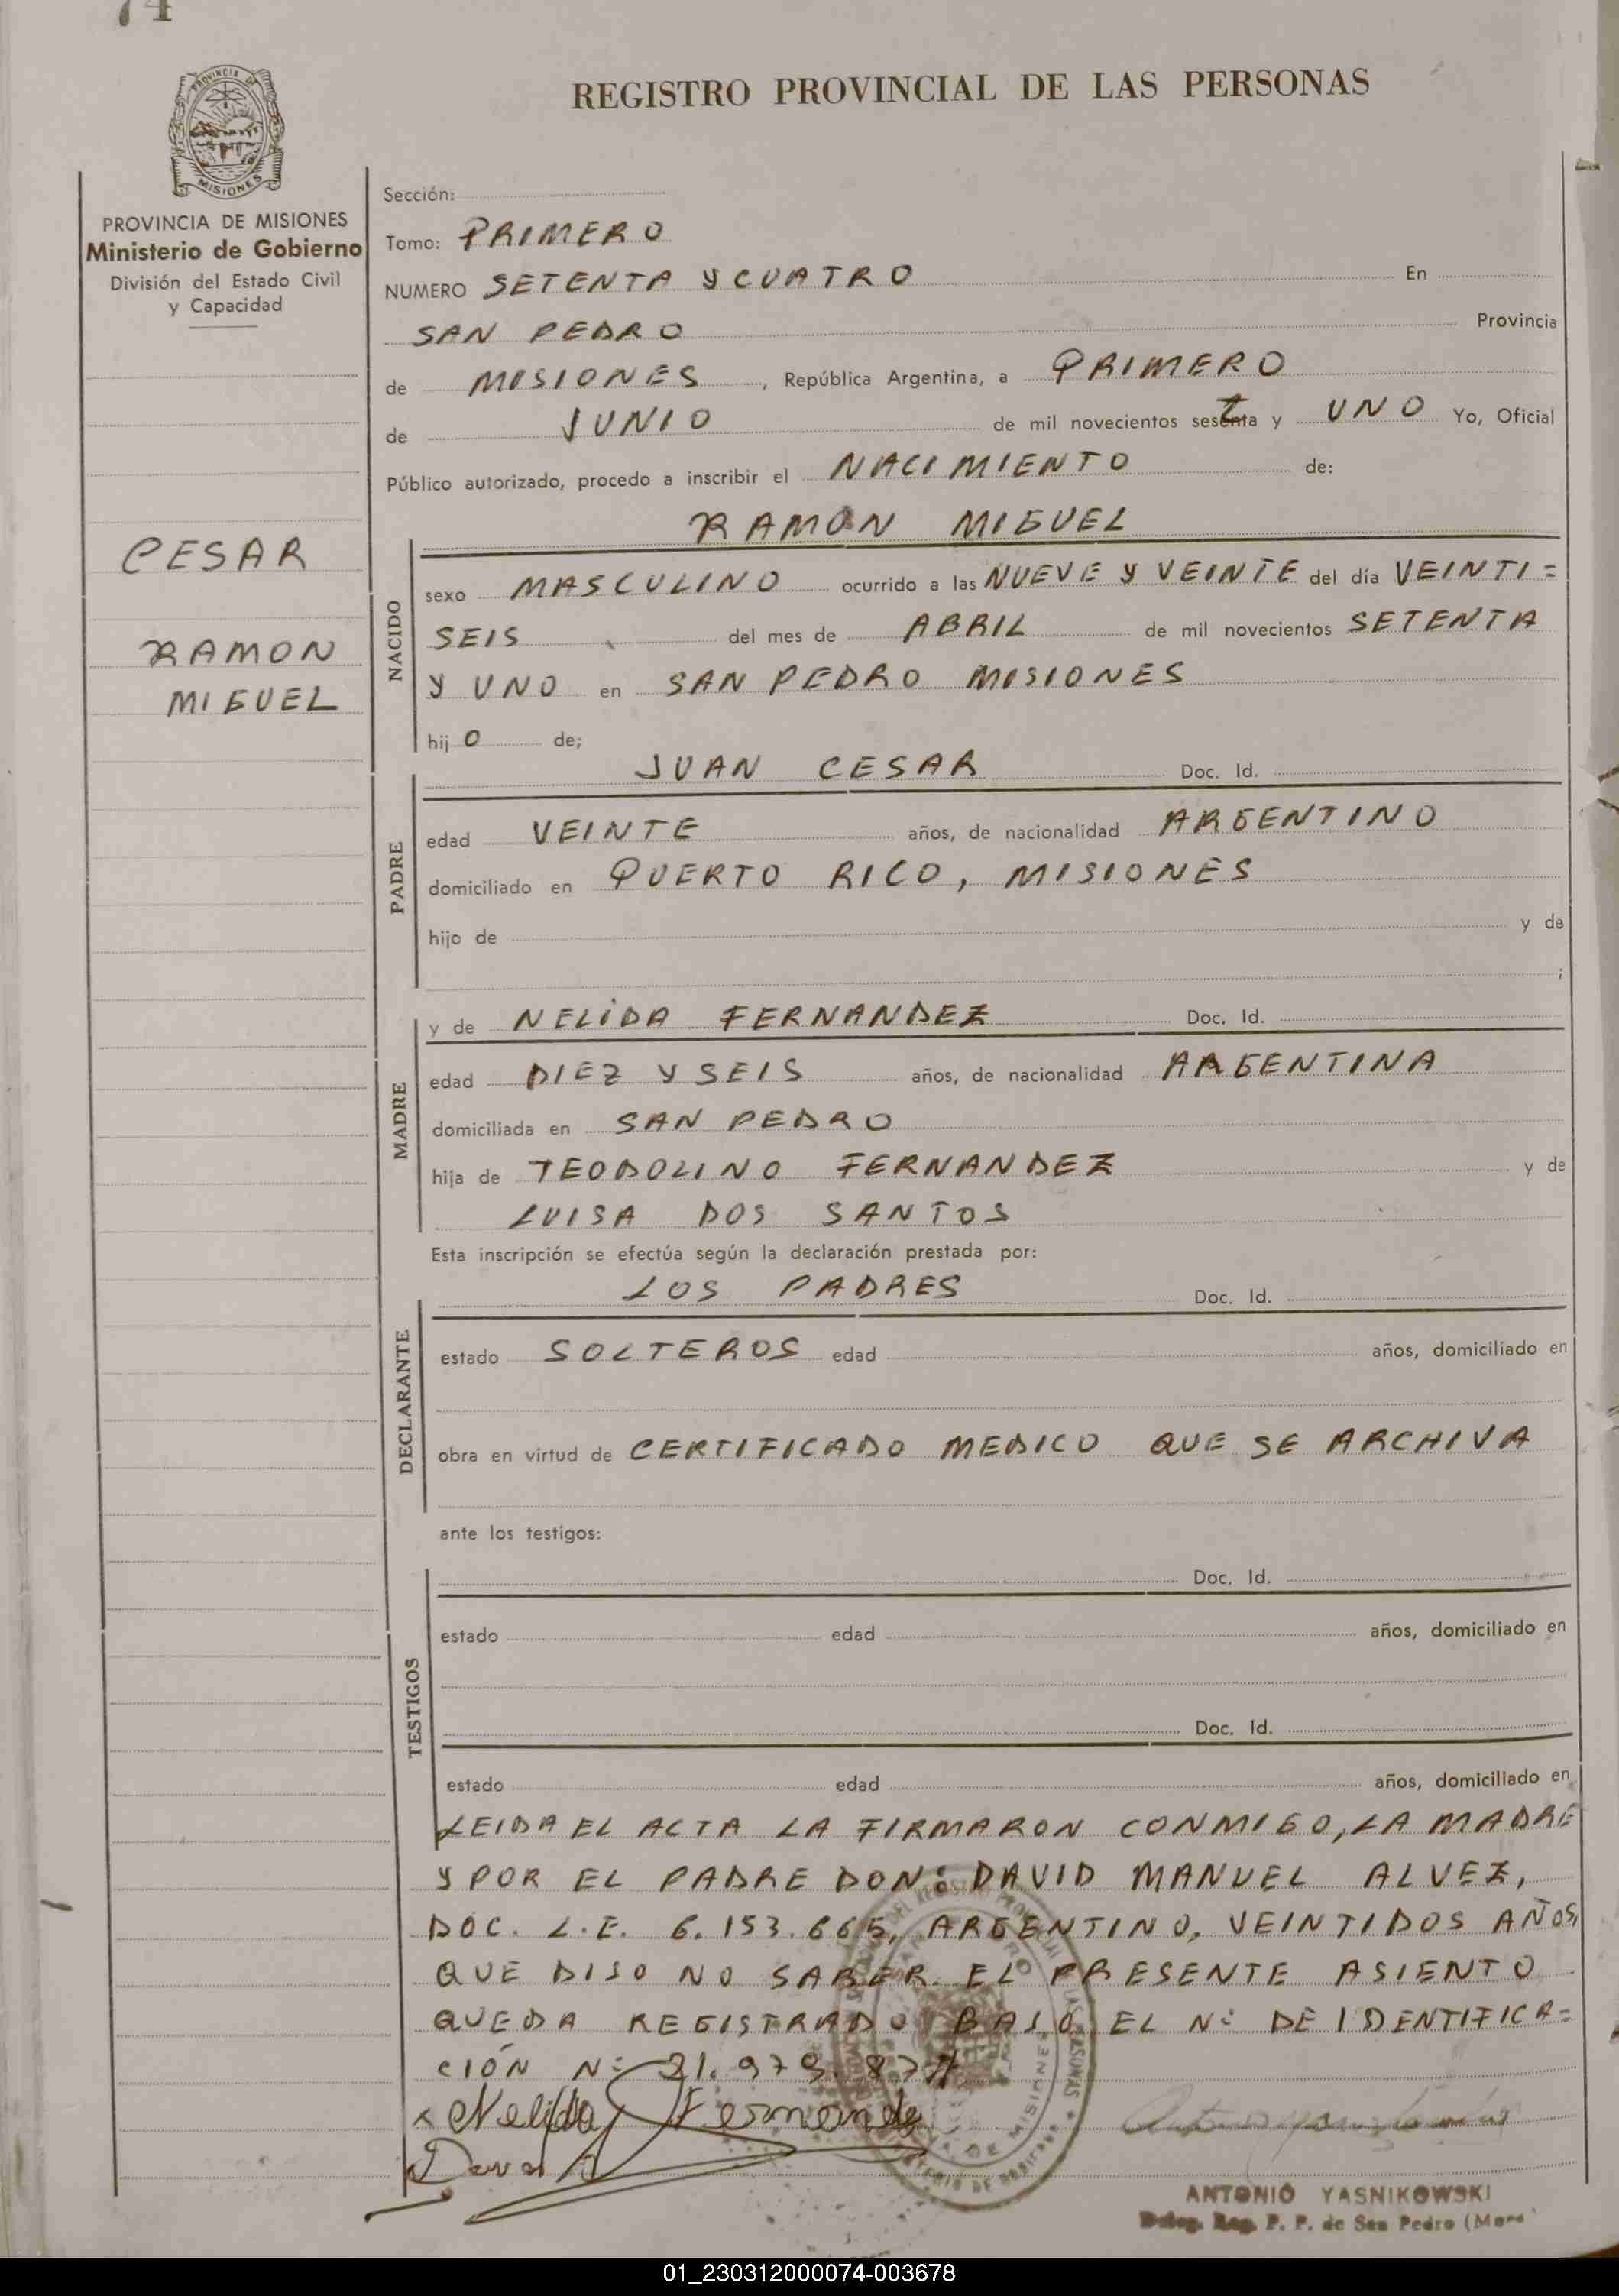 74
REGISTRO PROVINCIAL DE LAS PERSONAS
PROVINCIA DE MISIONES
PROVINCIA DE MISIONES
Ministerio de Gobierno
División del Estado Civil
y Capacidad
CESAR
RAMON
MIGUEL
Sección:
Tomo: PRIMERO
NUMERO SETENTA Y CUATRO En
SAN PEDRO Provincia
de MISIONES, República Argentina, a PRIMERO
de JUNIO de mil novecientos setenta y UNO Yo, Oficial
Público autorizado, procedo a inscribir el NACIMIENTO de:
RAMON MIGUEL
NACIDO
sexo MASCULINO ocurrido a las NUEVE Y VEINTE del día VEINTI=
SEIS del mes de ABRIL de mil novecientos SETENTA
Y UNO en SAN PEDRO MISIONES
hijO de;
JUAN CESAR Doc. Id.
PADRE
edad VEINTE años, de nacionalidad ARGENTINO
domiciliado en PUERTO RICO, MISIONES
hijo de y de
;
y de NELIDA FERNANDEZ Doc. Id.
MADRE
edad DIEZ Y SEIS años, de nacionalidad ARGENTINA
domiciliada en SAN PEDRO
hija de TEODOLINO FERNANDEZ y de
LUISA DOS SANTOS
Esta inscripción se efectúa según la declaración prestada por:
LOS PADRES Doc. Id.
DECLARANTE
estado SOLTEROS edad años, domiciliado en
obra en virtud de CERTIFICADO MEDICO QUE SE ARCHIVA
ante los testigos:
Doc. Id.
TESTIGOS
estado edad años, domiciliado en
Doc. Id.
estado edad años, domiciliado en
LEIDA EL ACTA LA FIRMARON CONMIGO, LA MADRE
Y POR EL PADRE DON: DAVID MANUEL ALVEZ,
DOC. L.E. 6.153.665, ARGENTINO, VEINTIDOS AÑOS,
QUE DIJO NO SABER. EL PRESENTE ASIENTO
QUEDA REGISTRADO BAJO EL Nº DE IDENTIFICA=
CIÓN Nº 21.979.
x Nelida Fernande
ANTONIO YASNIKOWSKI
Deleg. Reg. P. P. de San Pedro
01_230312000074-003678